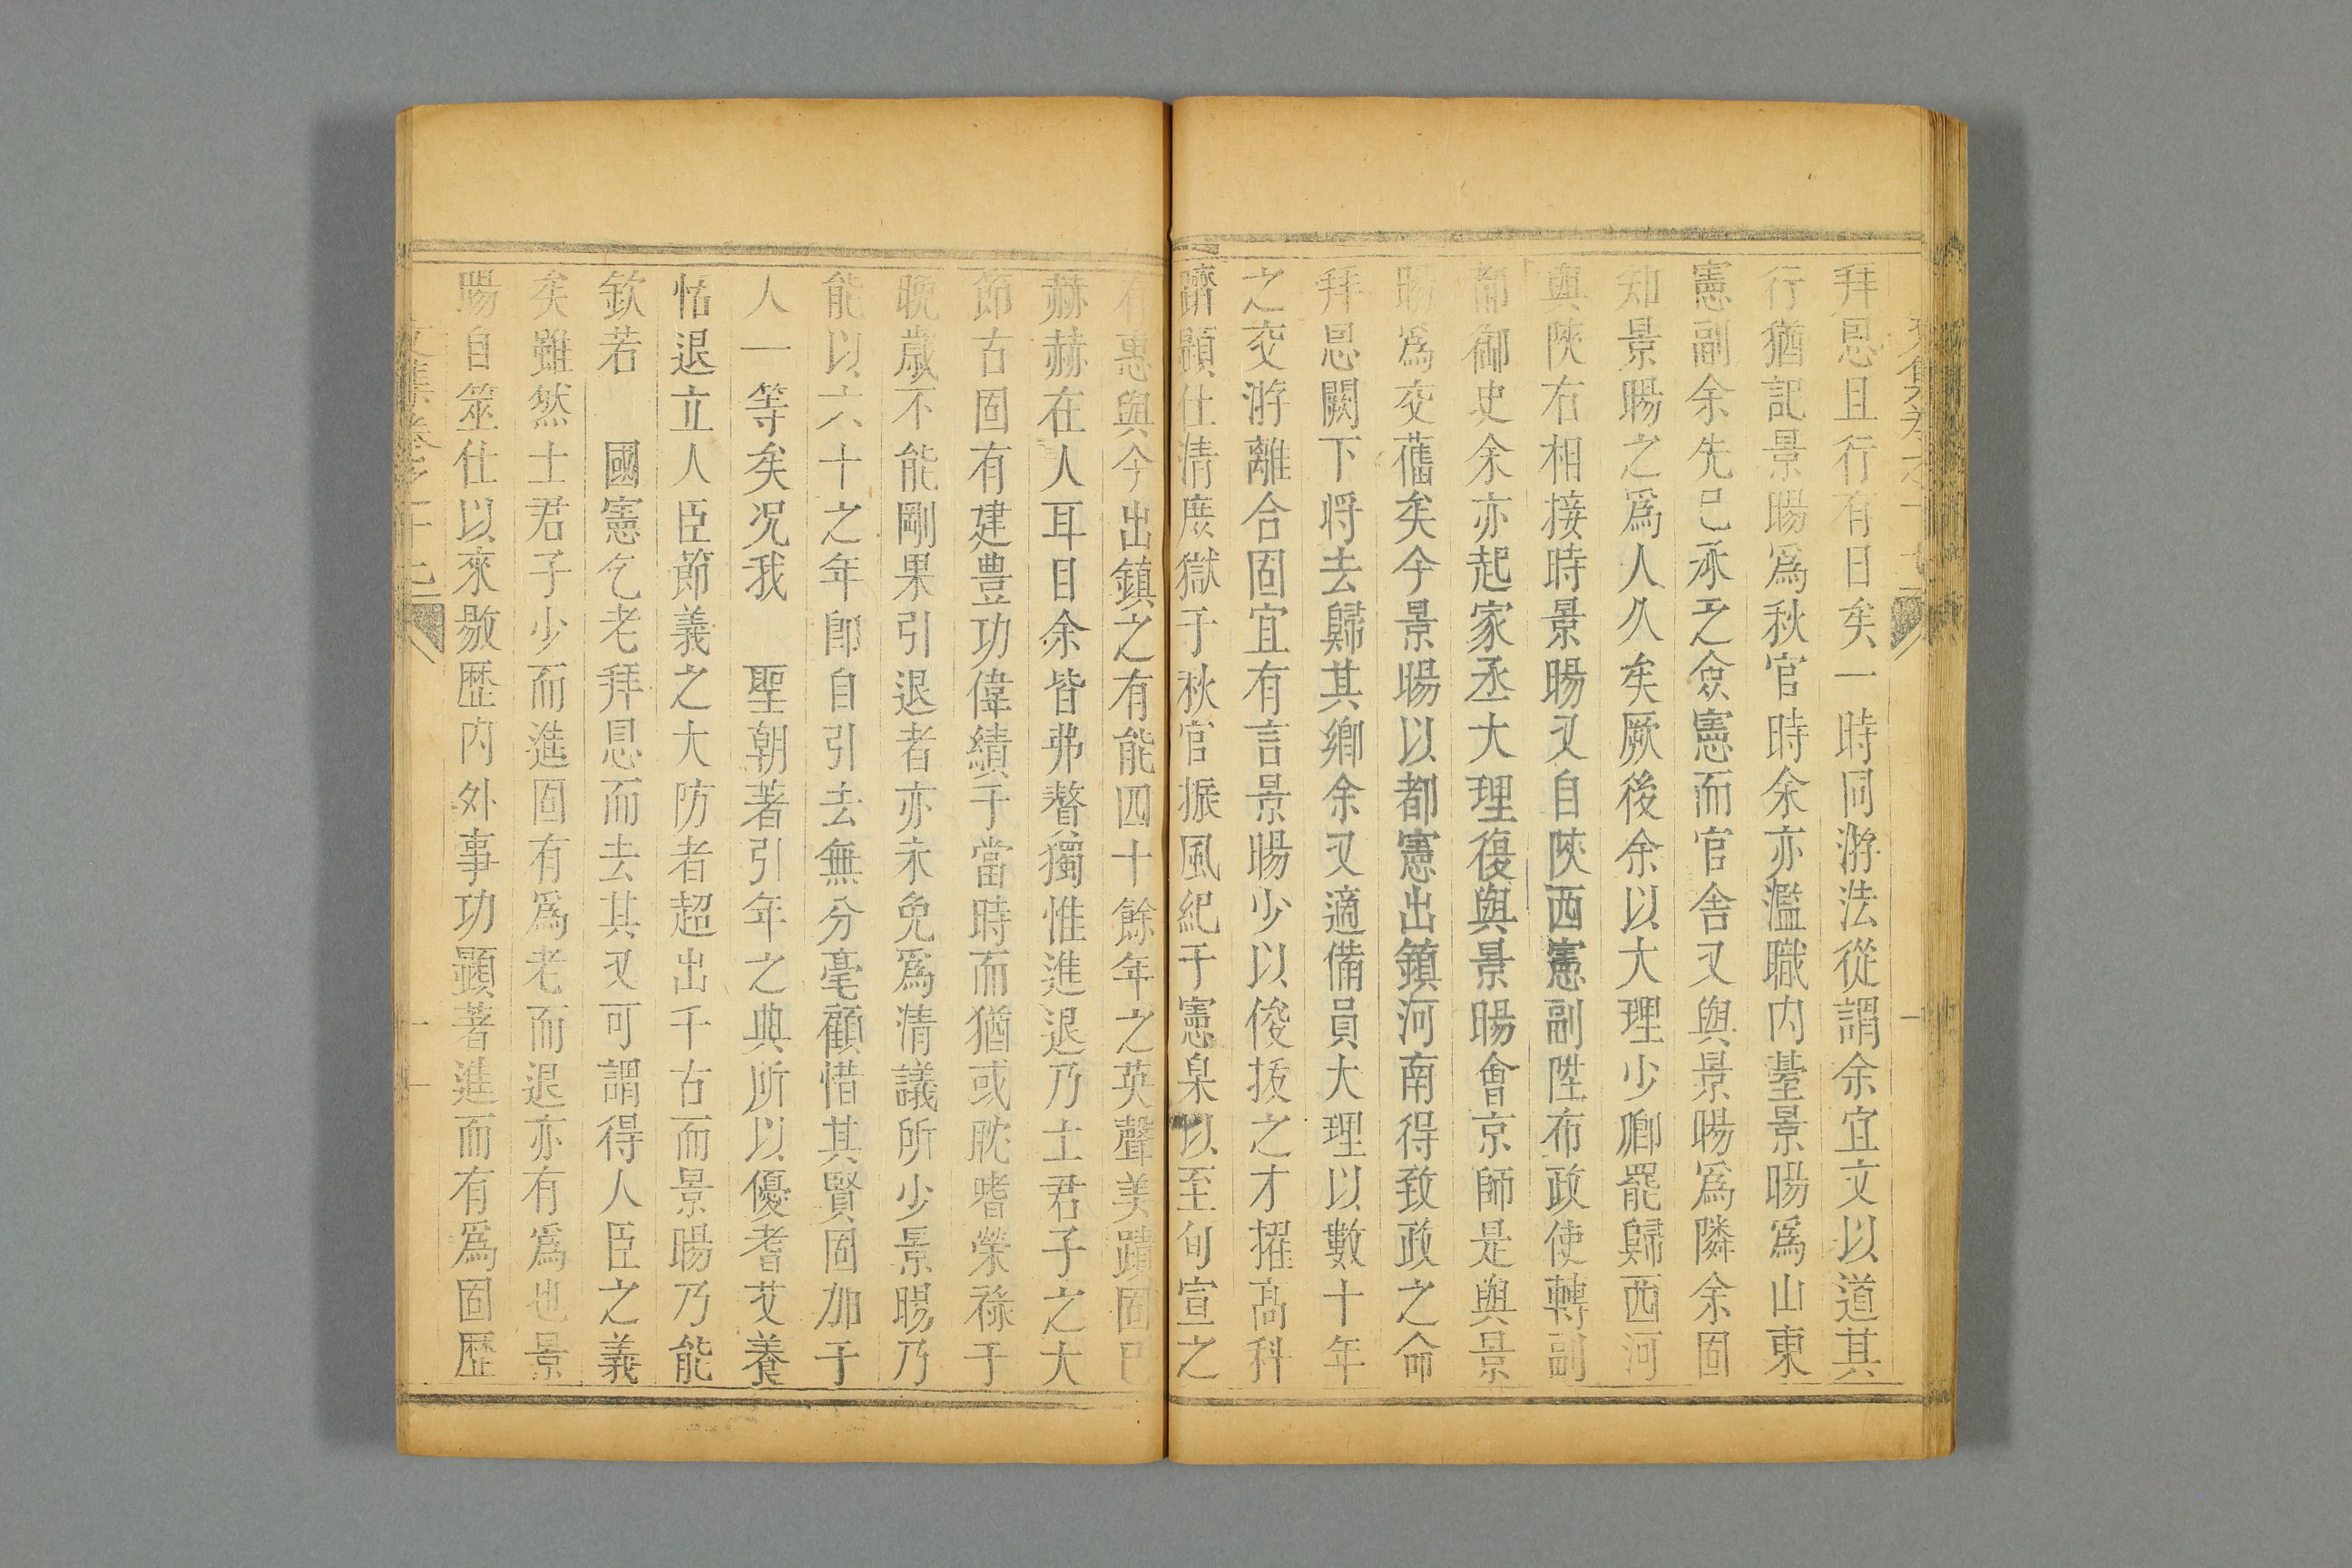 拜恩且行有日矣一時同游法從謂余宜文以道其
行猶記景暘爲秋官時余亦濫職内臺景暘爲山東
憲副余先已承乏僉憲而官舎又與景暘爲隣余固
知景暘之爲人久矣厥後余以大理少卿罷歸西河
與陜右相接時景暘又自陜西憲副陞布政使轉副
都御史余亦起家丞大理復與景暘會京師是與景
暘爲交舊矣今景暘以都憲出鎮河南得致政之命
拜恩闕下将去歸其鄉余又適備員大理以數十年
之交游離合固宜有言景暘少以俊拔之才擢髙科
躋顯仕清庻獄于秋官振風紀于憲臬以至旬宣之
有惠與今出鎮之有能四十餘年之英聲美蹟固已
赫赫在人耳目余皆弗贅獨惟進退乃士君子之大
節古固有建豊功偉績于當時而猶或耽嗜榮祿于
晩歳不能剛果引退者亦未免爲清議所少景暘乃
能以六十之年即自引去無分毫顧惜其賢固加于
人一等矣况我　聖朝著引年之典所以優耆艾養
恬退立人臣節義之大防者超出千古而景暘乃能
欽若　國憲乞老拜恩而去其又可謂得人臣之義
矣雖然士君子少而進固有爲老而退亦有爲也景
暘自筮仕以來敭歷内外事功顯著進而有爲固歷
文集卷之十七
十一